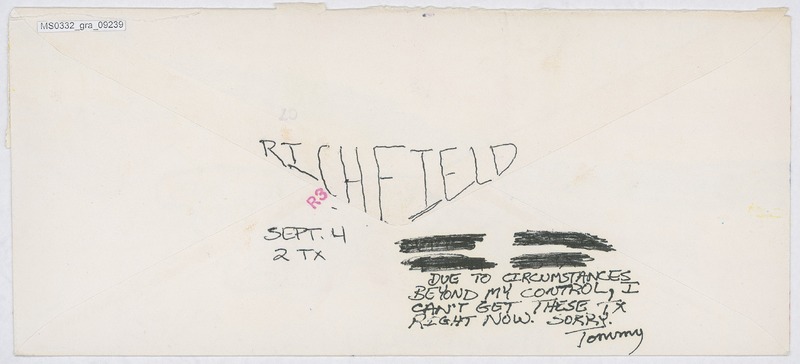 MS0332_gra_09239
RICHFIELD
R3
SEPT. 4
2 TX
DUE TO CIRCUMSTANCES
BEYOND MY CONTROL, I
CAN'T GET THESE TX
RIGHT NOW. SORRY.
Tommy